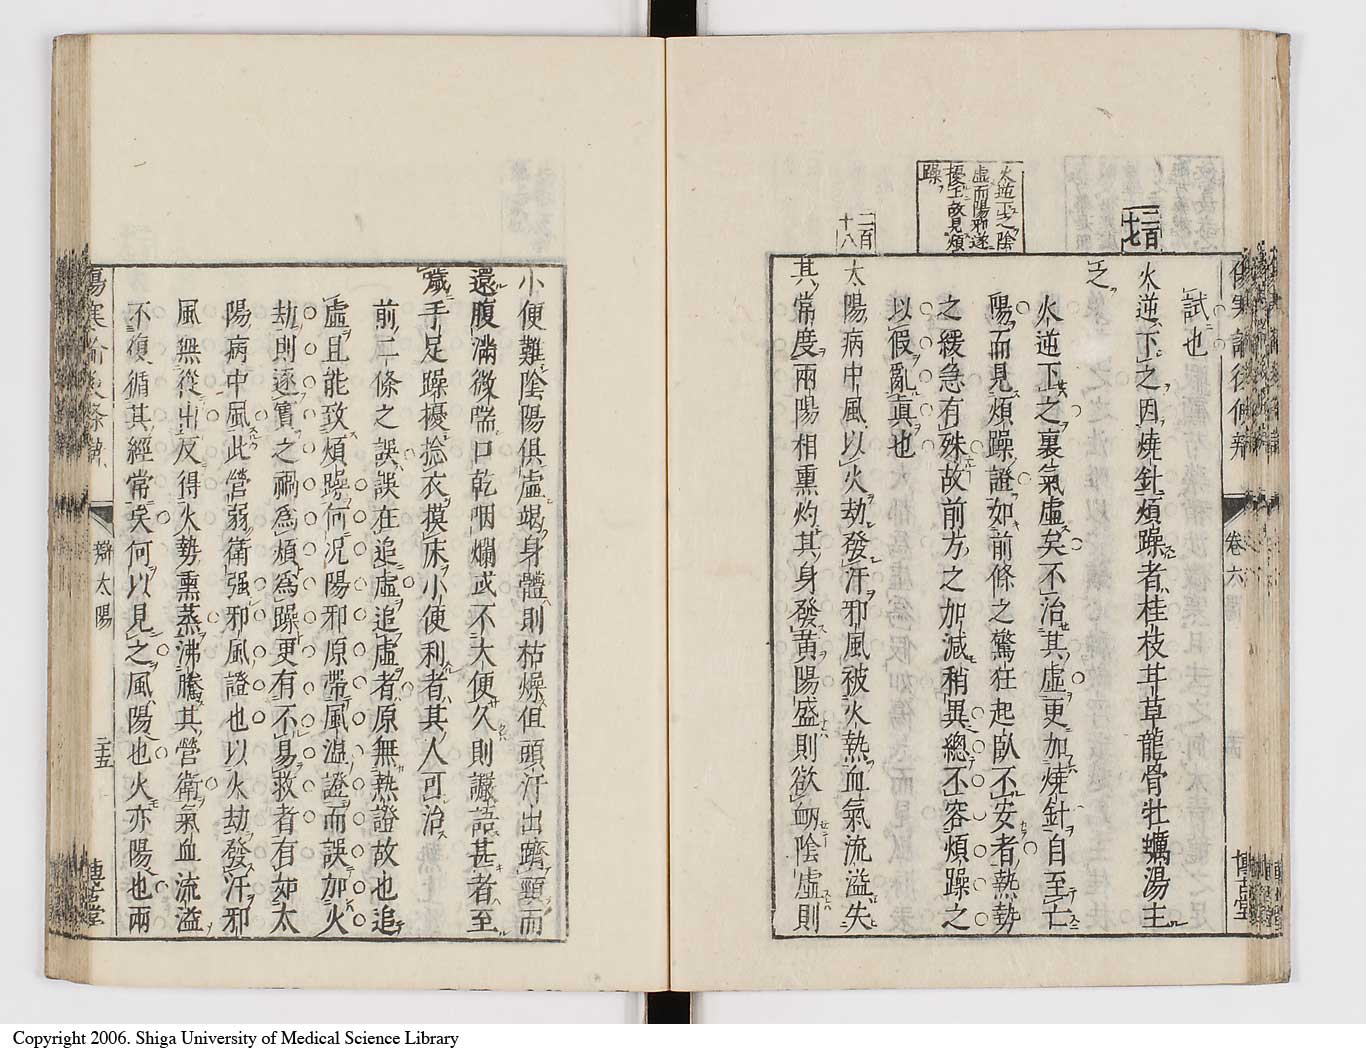 傷寒論後條辨
卷六
博古堂
試也
二百十七
火逆下之因燒針煩躁者桂枝甘草龍骨牡蠣湯主
之
火逆下之陰
虛而陽邪遂
擾王故見煩
躁
火逆下之裏氣虛矣不治其虛更加燒針自至亡
陽而見煩躁證如前條之驚狂起臥不安者熱勢
之緩急有殊故前方之加減稍異總不容煩躁之
以假亂真也
二百十八
太陽病中風以火劫發汗邪風被火熱血氣流溢失
其常度兩陽相熏灼其身發黃陽盛則欲衂陰虛則
小便難陰陽俱虛竭身體則枯燥但頭汗出躋頸而
還腹滿微喘口乾咽爛或不大便久則讝語甚者至
噦手足躁擾捻衣摸床小便利者其人可治
前二條之誤誤在追虛追虛者原無熱證故也追
虛且能致煩躁何况陽邪原帶風溫證而誤加火
劫則逐實之禍爲煩爲躁更有不易救者有如太
陽病中風此營弱衛强邪風證也以火劫發汗邪
風無從出反得火勢熏蒸沸騰其營衛氣血流溢
不復循其經常矣何以見之風陽也火亦陽也兩
傷寒論後條辨
辨太陽
二十五
博古堂
Copyright 2006. Shiga University of Medical Science Library